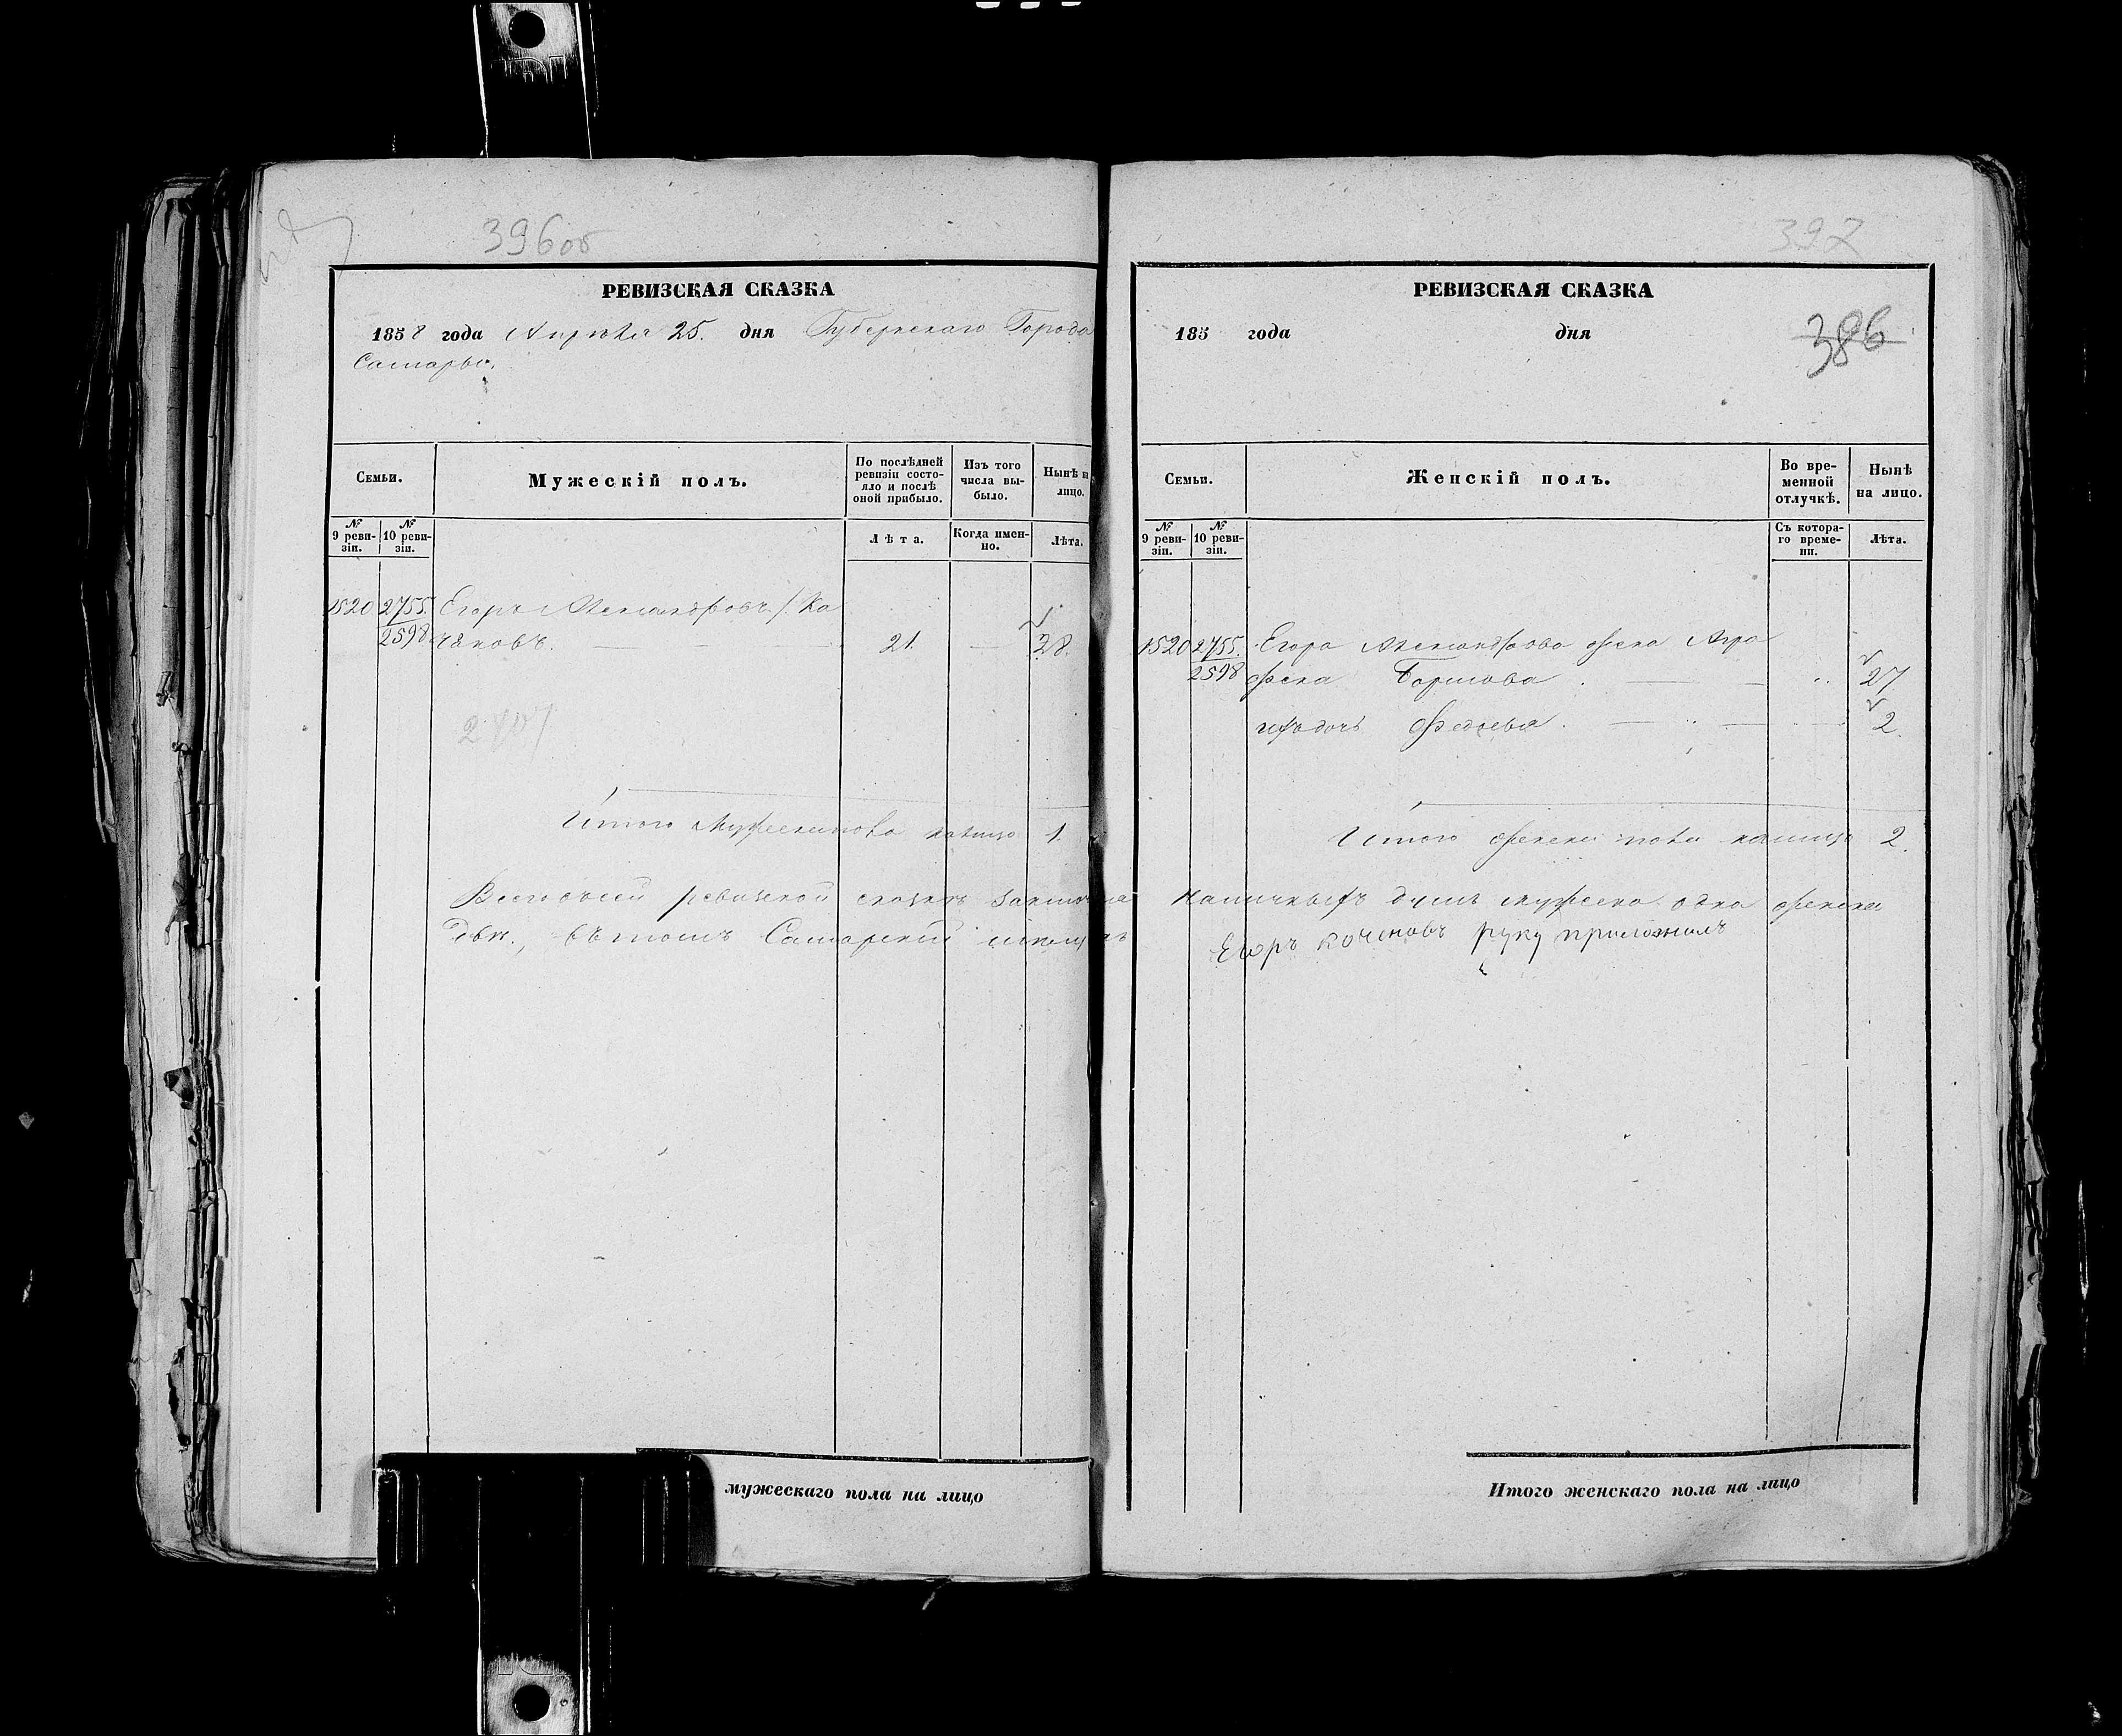 396об
РЕВИЗСКАЯ СКАЗКА
1858 года Апрѣля 25. дня Губернскаго Города
Самары.
Семьи.
Мужескій полъ.
По послѣдней ревизіи состояло и послѣ оной прибыло.
Изъ того числа выбыло.
Нынѣ на лицо.
№ 9 ревизіи.
№ 10 ревизіи.
Лѣта.
Когда именно.
Лѣта.
1520 2755. Егоръ Александровъ
2598 21. 28.
Итого мужеска пола налицо 1.
Всего въ сей ревизской сказкѣ
двѣ., въ томъ Самарскій
мужескаго пола на лицо
397
РЕВИЗСКАЯ СКАЗКА
386
185 года дня
Семьи.
Женскій полъ.
Во временной отлучкѣ.
Нынѣ на лицо.
№ 9 ревизіи.
№ 10 ревизіи.
Съ котораго времени.
Лѣта.
1520 2755. Егора Александрова жена Агра
2598 фена Борисова 27
дочь 2.
Итого женска пола налицо 2.
наличныхъ душъ мужеска одна женска
Егоръ Коченовъ руку приложилъ
Итого женскаго пола на лицо